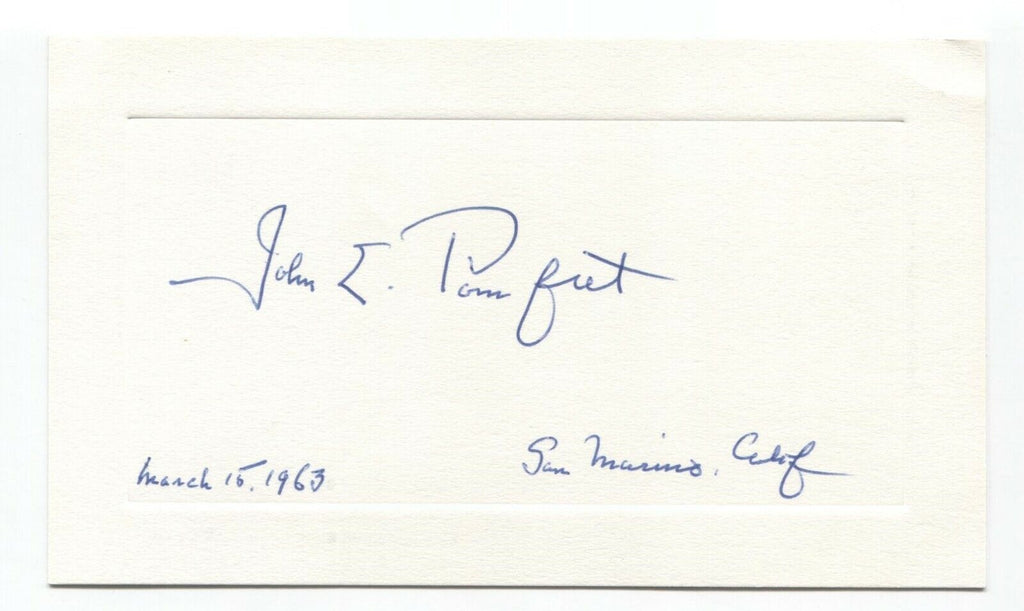 John E. Pomfret
March 15, 1963
San Marino, Calif